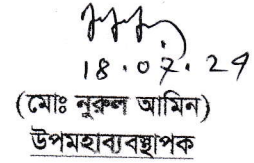 18.07.24
(মোঃ নুরুল আমিন)
উপমহাব্যবস্থাপক